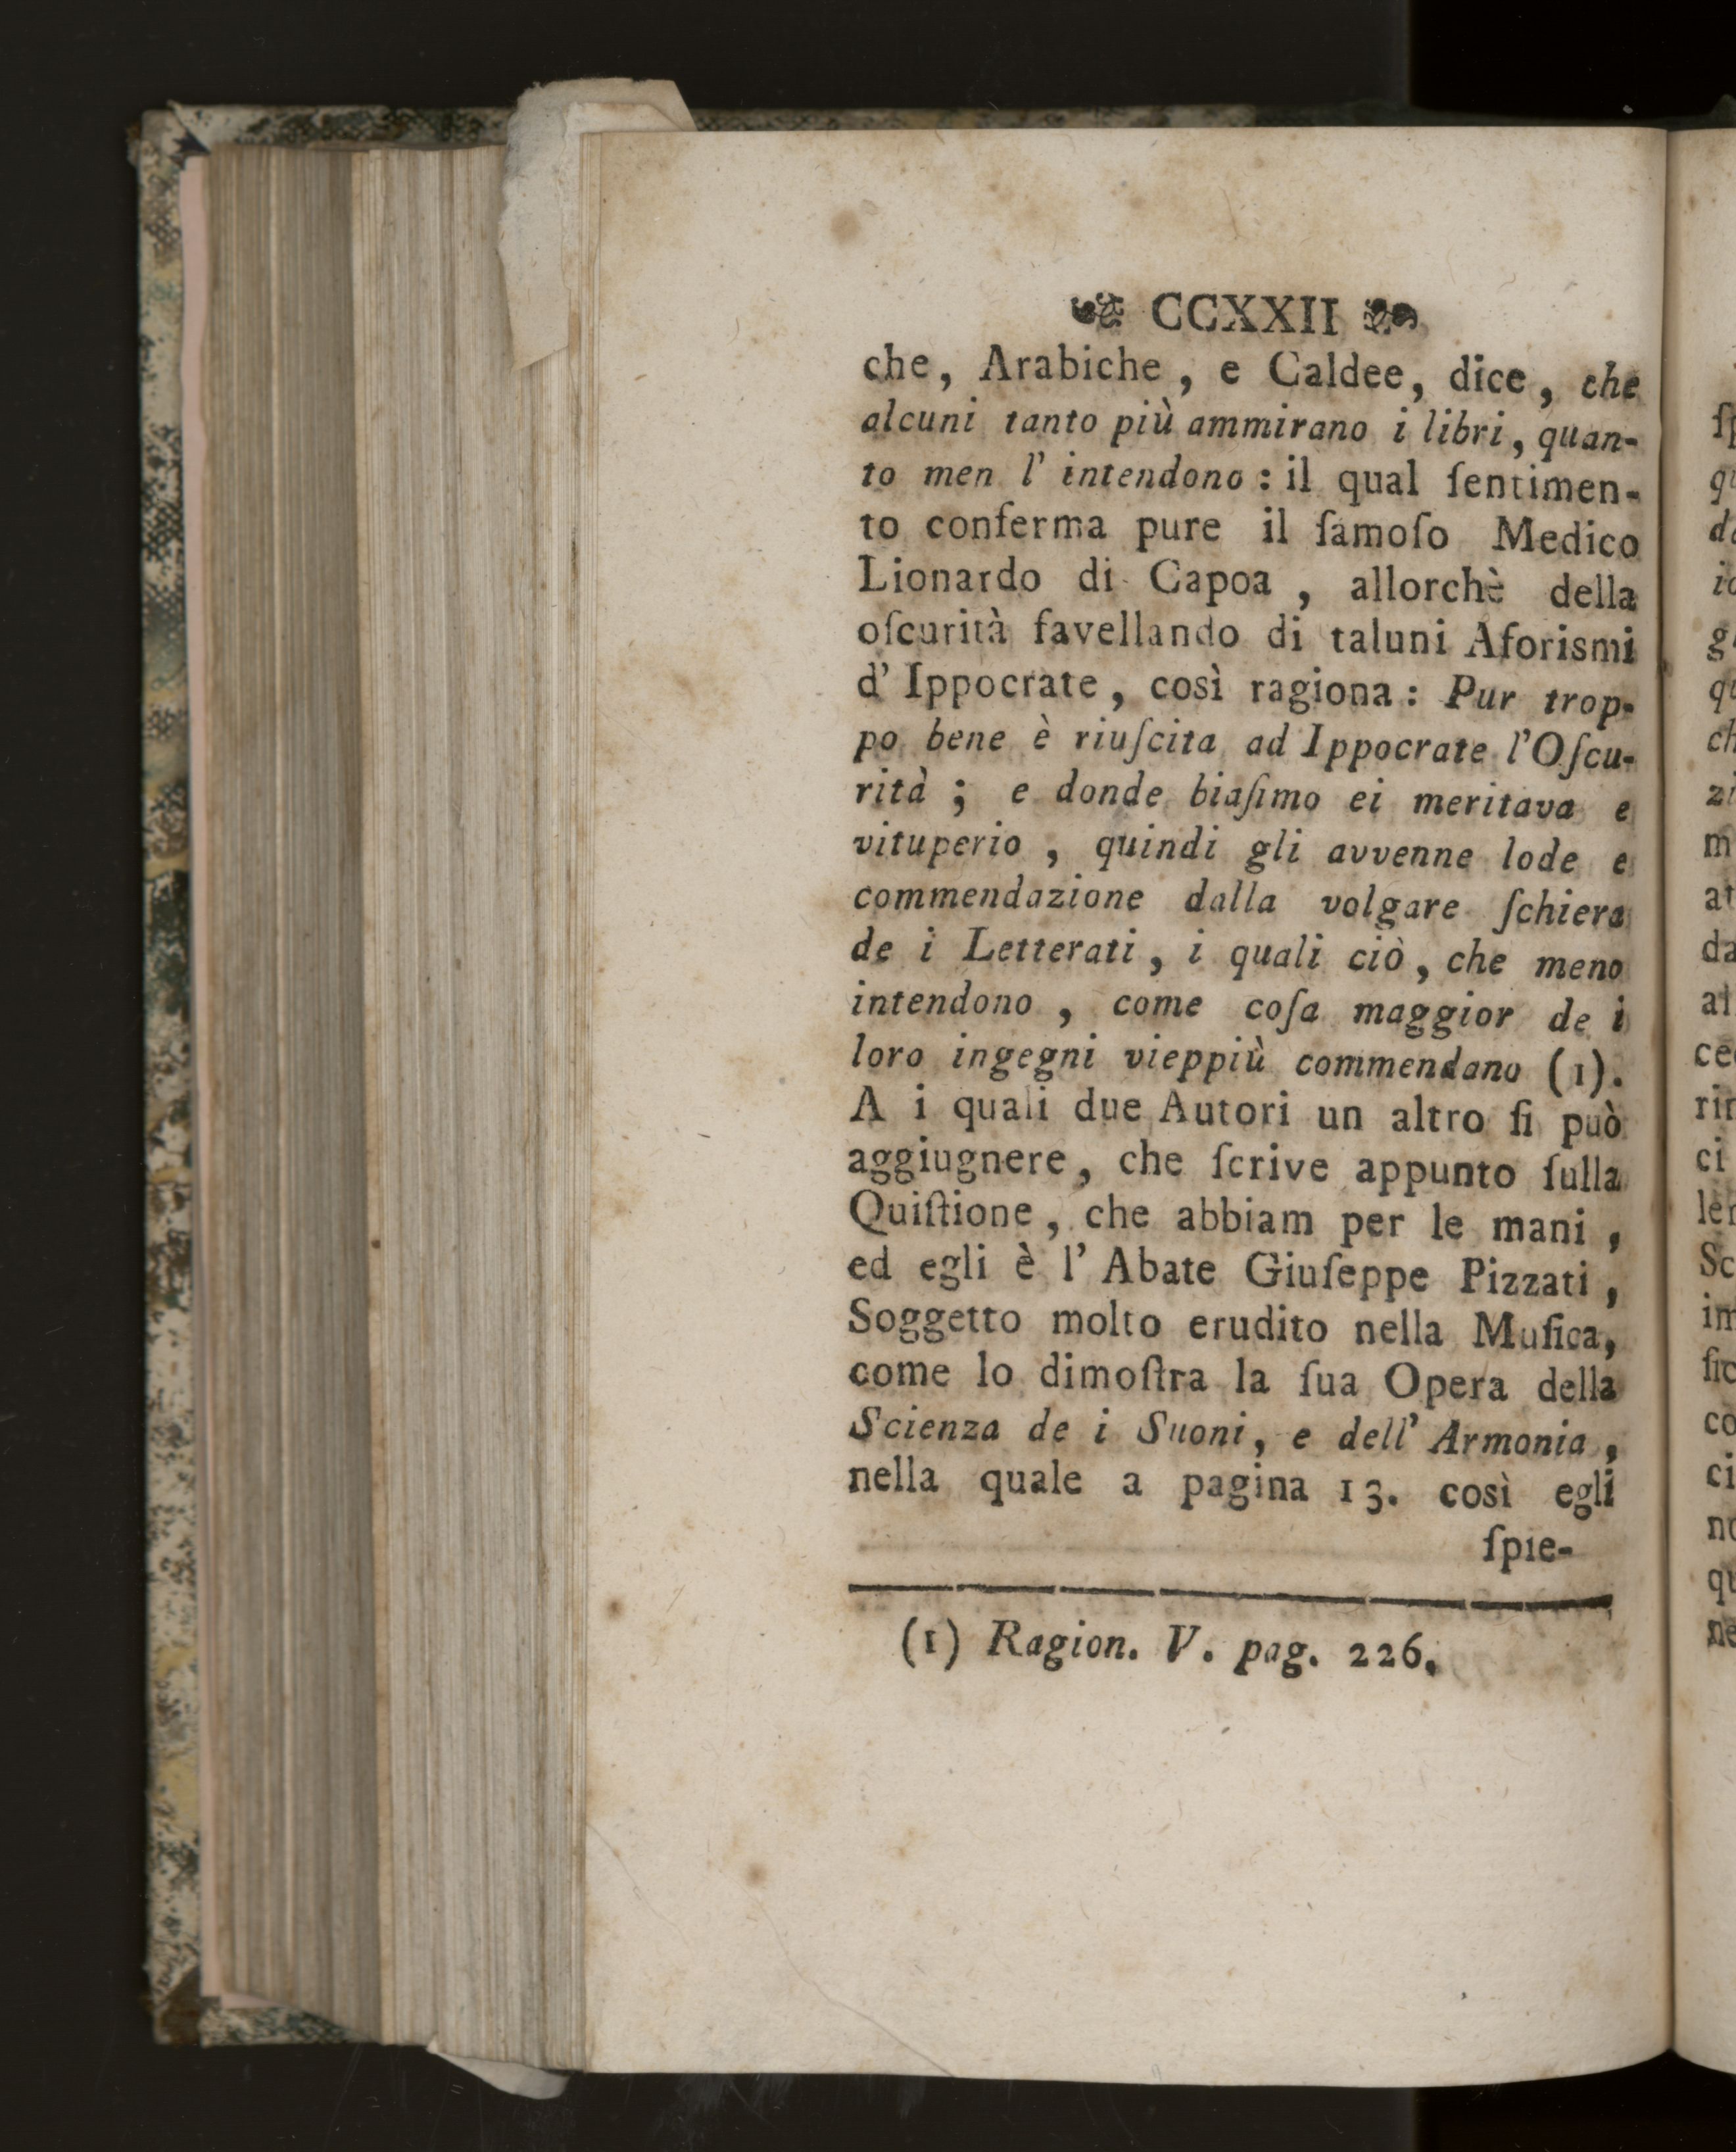 CCXXII
che, Arabiche, e Caldee, dice, che
alcuni tanto più ammirano i libri, quan-
to men l' intendono: il qual ſentimen-
to conferma pure il famoſo Medico
Lionardo di Capoa, allorchè della
oſcurità favellando di taluni Aforismi
d' Ippocrate, così ragiona: Pur trop-
po bene è riuſcita ad Ippocrate l'Oſcu-
rità; e donde biaſimo ei meritava e
vituperio, quindi gli avvenne lode e
commendazione dalla volgare ſchiera
de i Letterati, i quali ciò, che meno
intendono, come coſa maggior de i
loro ingegni vieppiù commendano (1).
A i quali due Autori un altro ſi può
aggiugnere, che ſcrive appunto ſulla
Quiſtione, che abbiam per le mani,
ed egli è l' Abate Giuſeppe Pizzati,
Soggetto molto erudito nella Muſica,
come lo dimoſtra la ſua Opera della
Scienza de i Suoni, e dell' Armonia,
nella quale a pagina 13. così egli
ſpie-
(1) Ragion. V. pag. 226.